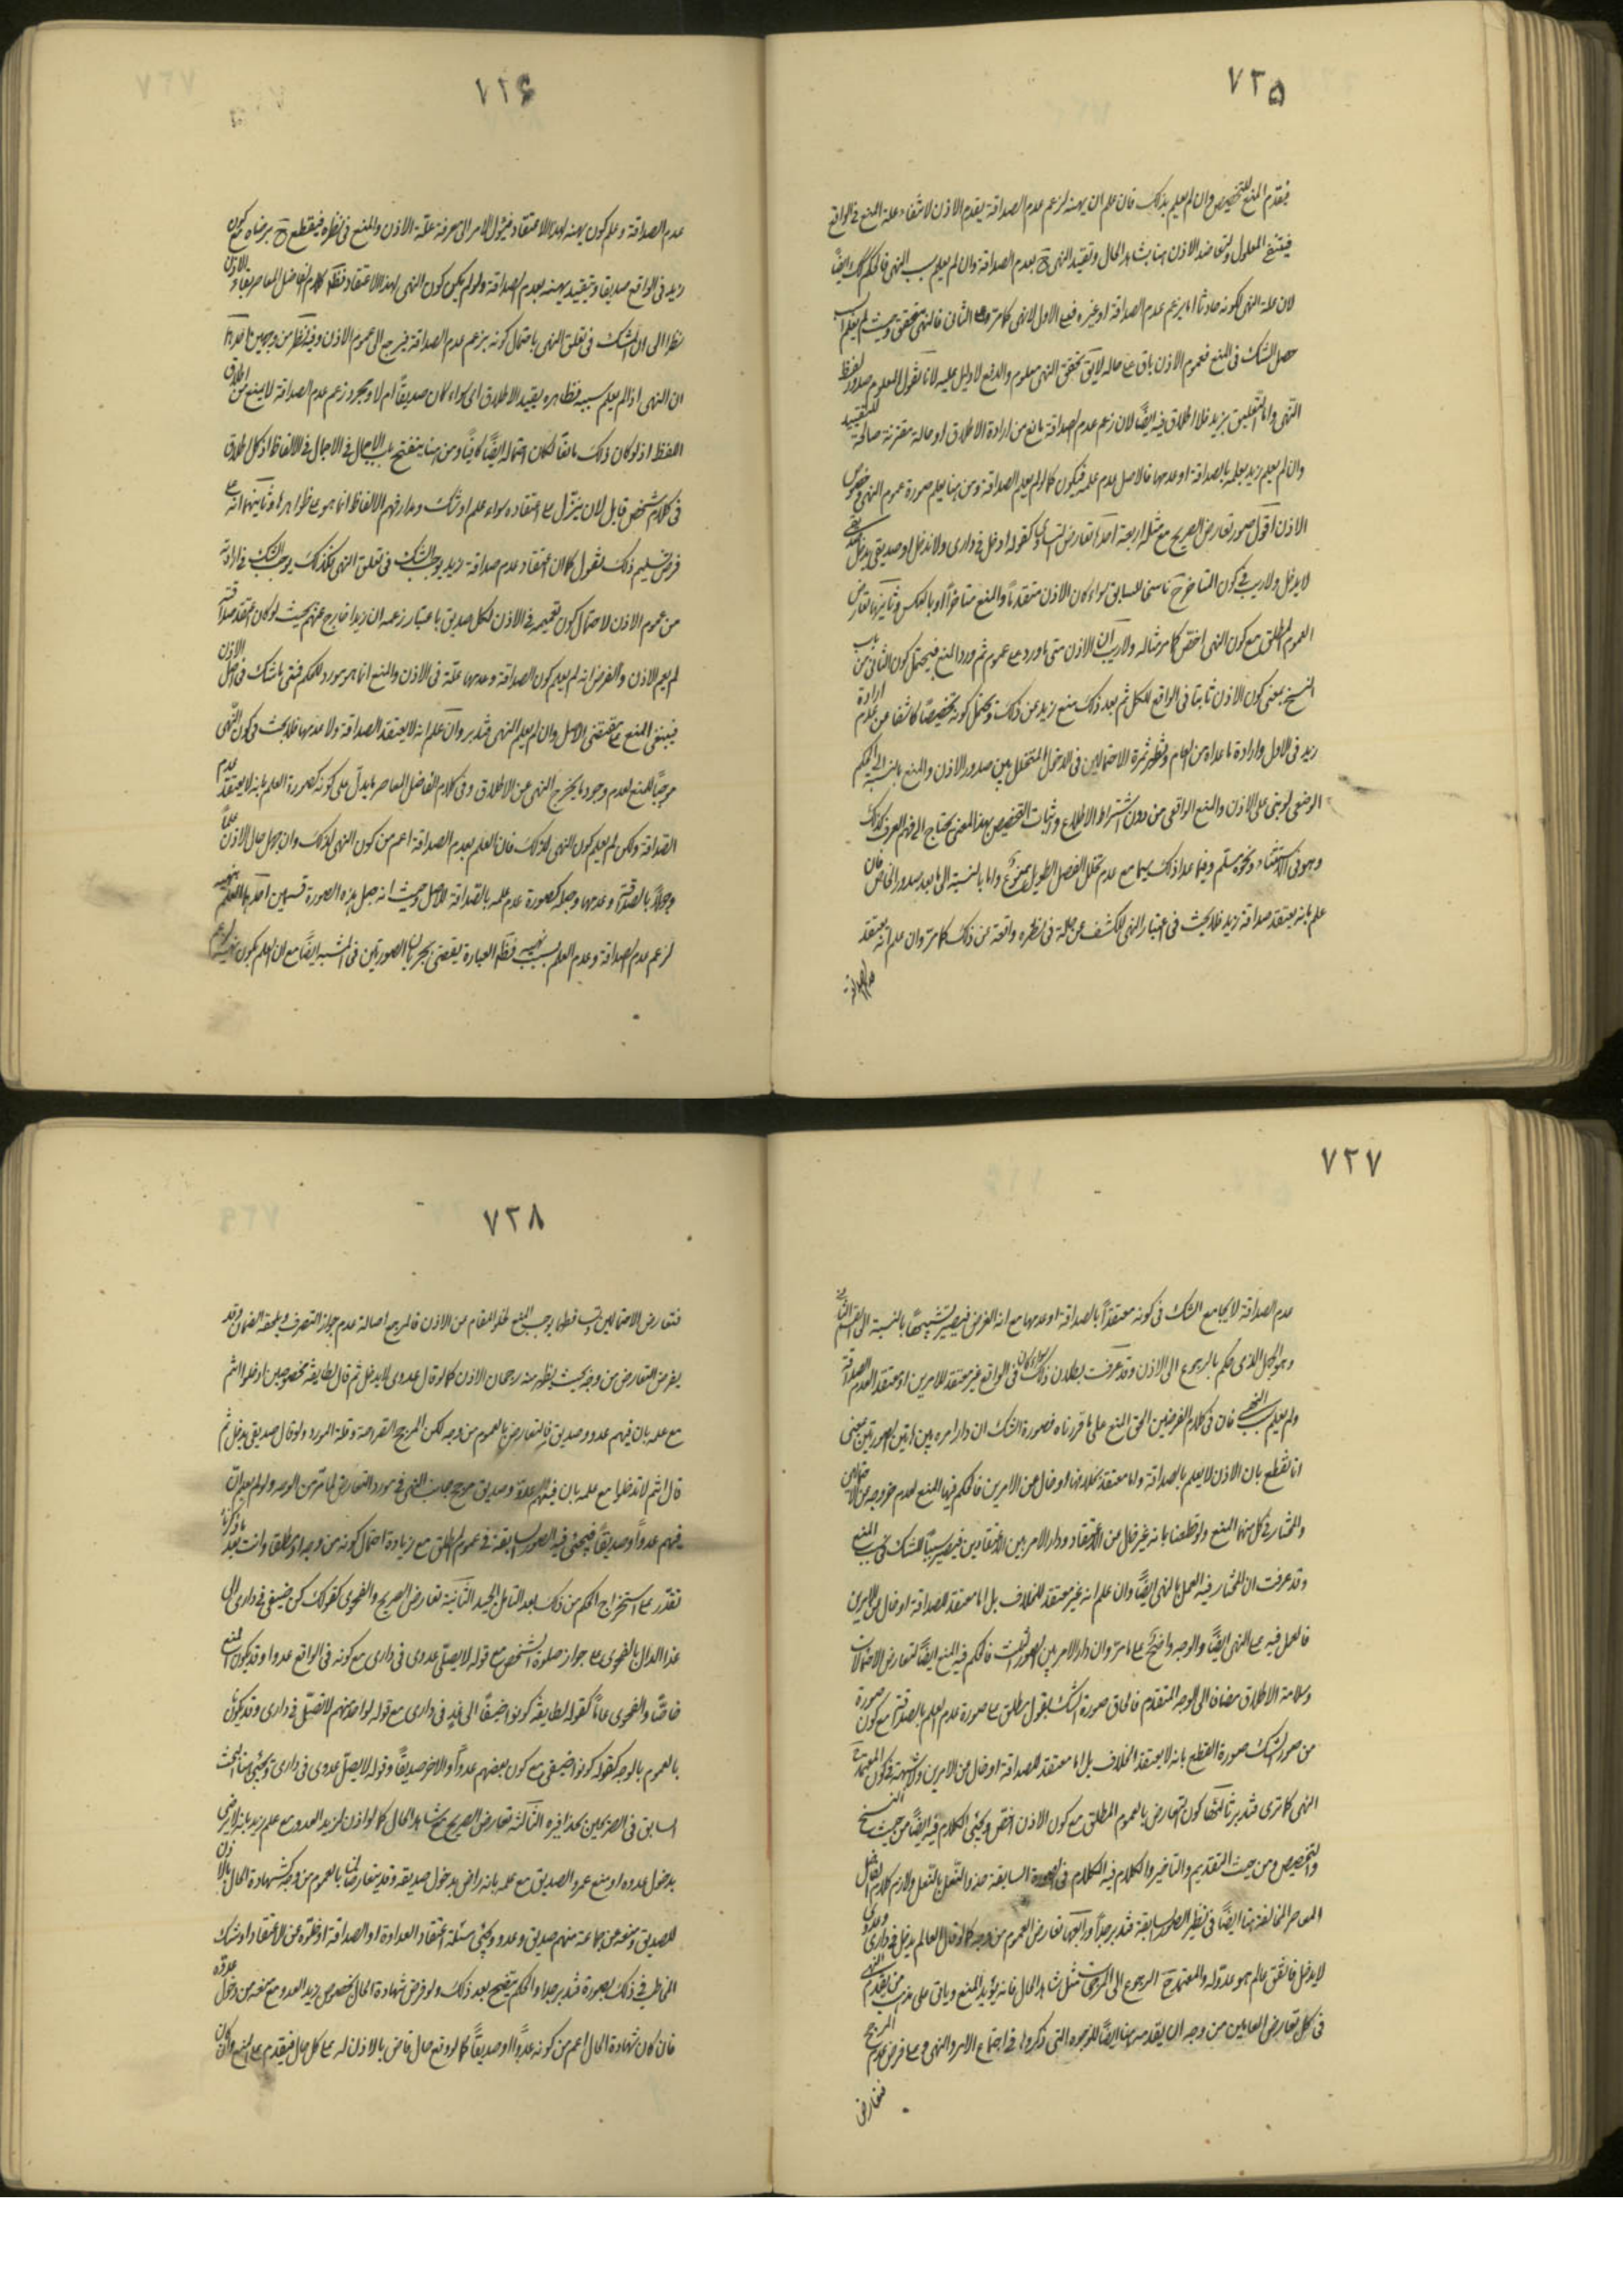 ٧٢۵
فيقدم المنع للتخصيص وان لم يعلم بذلك فان علم ان نهيه لزعم عدم الصداقة يقدم الاذن لانتفاء علة المنع فى الواقع
فينتفى المعلول ولتعاضد الاذن هنا بشاهد الحال وتقييد النهى ح بعدم الصداقة وان لم يعلم سبب النهى فالحكم كك ايضاً
لان علة النهى لكونه حادثا اما بزعم عدم الصداقة او غيره فعلى الاول لا نهى كما مر وعلى الثانى فالنهى متحقق وحيث لم يعلم
حصل الشك فى المنع فعموم الاذن باق على حاله لا يق تحقق النهى معلوم والدفع لا دليل عليه لانا نقول المعلوم صدور لفظ
النهى واما التعليق بزيد فلا اطلاق فيه ايضاً لان زعم عدم الصداقة مانع من ارادة الاطلاق او حالة مقترنة صالحة للتقييد
وان لم يعلم زيد بعلمه بالصداقة او عدمها فالاصل عدم علمه فيكون كما لو لم يعلم الصداقة ومن هنا يعلم صورة عموم النهى وخصوص
الاذن اقول صور تعارض الصريح مع مثله اربعة احدها تعارض التساوى كقوله ادخل فى دارى ولا تدخل او صديقى يدخل صديقى
لا يدخل ولا ريب فى كون المتاخر ح ناسخا للسابق سواء كان الاذن متقدماً والمنع متاخراً او بالعكس وثانيها تعارض
العموم المطلق مع كون النهى اخص كما مر مثاله ولا ريب ان الاذن متى ما ورد على عموم ثم ورد المنع فيحتمل كون الثانى من باب
النسخ بمعنى كون الاذن ثابتا فى الواقع للكل ثم بعد ذلك منع زيد عن ذلك ويحتمل كونه تخصيصا كاشفا عن عدم ارادة
زيد فى الاول وارادة ما عداه من العام وتظهر ثمرة الاحتمالين فى الدخول المتخلل بين صدور الاذن والمنع بالنسبة الى الحكم
الوضعى لو بنى على الاذن والمنع الواقعى من دون اشتراط الاطلاع واثبات التخصيص بهذا المعنى يحتاج الى فهم العرف كذلك
وهو فى الاستثناء ونحوه مسلم وفيما عدا ذلك سيما مع عدم تخلل الفصل الطويل ممنوع واما بالنسبة الى ما بعد صدور الخاص فان
علم بانه يعتقد صداقة زيد فلا بحث فى اعتبار النهى لكشفه عن علة فى نظره واقعة عن ذلك كما مر وان علم انه يعتقد
عدم الصداقة
٧٢۶
عدم الصداقة وعلم كون نهيه لهذا الاعتقاد فيئول الامر الى معرفة علة الاذن والمنع فى نظره فيقطع ح برضاه مع كون
زيد فى الواقع صديقا وتقييد نهيه بعدم الصداقة ولو لم يكن كون النهى لهذا الاعتقاد فظهر كلام الفاضل المعاصر بقاء الاذن
نظرا الى ان الشك فى تعلق النهى باحتمال كونه بزعم عدم الصداقة فيرجع الى عموم الاذن وفيه نظر من وجهين احدهما
ان النهى اذا لم يعلم سببه فظاهره يفيد الاطلاق اى سواء كان صديقاً ام لا ومجرد زعم عدم الصداقة لا يمنع من اطلاق
اللفظ اذ لو كان ذلك مانعاً لكان احتماله ايضاً كافيا ومن هنا ينفتح باب الاجمال فى الالفاظ اذ كل اطلاق
فى كلام شخص قابل لان ينزل على اعتقاده سواء علم او شك ومدار فهم الالفاظ انما هو على ظواهرها وثانيهما انه على
فرض تسليم ذلك نقول كما ان اعتقاد عدم صداقة زيد يوجب الشك فى تعلق النهى فكذلك يوجب الشك فى ارادته
من عموم الاذن لاحتمال كون تعميمه فى الاذن لكل صديق باعتبار زعمه ان زيدا خارج عنهم بحيث لو كان معتقد صداقته
لم يعم الاذن والفرض انه لم يعلم كون الصداقة وعدمها علة فى الاذن والمنع انما هو مورد للحكم فمتى ما شك فى اصل الاذن
فينبغى المنع على مقتضى الاصل وان لم يعلم النهى فتدبر وان علم انه لا يعتقد الصداقة ولا عدمها فلا بحث فى كون النهى
موجباً للمنع لعدم وجود ما يخرج النهى عن الاطلاق وفى كلام الفاضل المعاصر ما يدل على كونه كصورة العلم بانه لا يعتقد عدم
الصداقة ولكن لم يعلم كون النهى لذلك فان العلم بعدم الصداقة اعم من كون النهى لذلك وان جهل حال الاذن علماً
وجهلاً بالصداقة وعدمها وجعله كصورة عدم علمه بالصداقة للاصل وحيث انه جعل هذه الصورة قسمين احدهما العلم بنهيه
لزعم عدم الصداقة وعدم العلم بسبب نهيه فظهر العبارة يقتضى جريان الصورتين فى المشبه ايضاً مع ان العلم بكون نهيه لزعم
٧٢٧
عدم الصداقة لا يجامع الشك فى كونه معتقداً بالصداقة او عدمها مع انه الفرض فيصير تشبيهاً بالنسبة الى القسم الثانى
وهو الجهل الذى حكم بالرجوع الى الاذن وقد عرفت بطلان ذلك سواء كان فى الواقع غير معتقد للامرين او معتقد لعدم الصداقة
ولم يعلم سبب النهى فان فى كلام الفرضين الحق المنع على ما قررناه فصورة الشك ان دار امره بين هاتين الصورتين بمعنى
انا نقطع بان الاذن لا يعلم بالصداقة واما معتقد بخلافها او خال عن الامرين فالحكم فيها المنع لعدم خروجه من الاحتمالين
والمختار فى كل منهما المنع ولو قطعنا بانه غير خال عن الاعتقاد ودار الامر بين الاعتقادين فيصير سبباً للشك فى سبب المنع
وقد عرفت ان المختار فيه العمل بالنهى ايضاً وان علم انه غير معتقد للخلاف بل اما معتقد للصداقة او خال عن الامرين
فالعمل فيه على النهى ايضاً والوجه واضح على ما مر وان دار الامر بين الصور الثلث فالحكم فيه المنع ايضاً لتعارض الاحتمالات
وسلامة الاطلاق مضافا الى الوجه المتقدم فالحاق صورة الشك بقول مطلق على صورة عدم العلم بالصداقة مع كون صورة
من صور الشك صورة القطع بانه لا يعتقد الخلاف بل اما معتقد للصداقة او خال من الامرين ولا شبهة فى كون المعتمد ح
النهى كما ترى فتدبر ثالثها كون التعارض بالعموم المطلق مع كون الاذن اخص ويجئ الكلام فيه ايضاً من حيث النسخ
والتخصيص ومن حيث التقديم والتاخير والكلام فيه الكلام فى الصورة السابقة حذو النعل بالنعل ولازم كلام الفاضل
المعاصر المخالفة هنا ايضاً فى نظير الصور السابقة فتدبر جداً ورابعها تعارض العموم من وجه كما لو قال العالم يدخل فى دارى وعدوى
لا يدخل فاتفق عالم هو عدو له والمعتمد ح الرجوع الى المرجحات مثل شاهد الحال فانه يؤيد المنع وياتى على مذهب من يقدم النهى
فى كل تعارض العامين من وجه ان يقدمه هنا ايضاً للوجوه التى ذكروها فى اجتماع الامر والنهى وعلى فرض عدم المرجح
فتعارض
٧٢٨
فتعارض الاحتمالين وتساقطهما يوجب المنع لخلو المقام من الاذن فالمرجع اصالة عدم جواز التصرف ويلحقه الضمان وقد
يفرض التعارض من وجه بحيث يظهر منه رجحان الاذن كما لو قال عدوى لا يدخل ثم قال لطايفة مخصوصين ادخلوا انتم
مع علمه بان فيهم عدو وصديق فالتعارض بالعموم من وجه لكن المرجح القرابة وقلة المورد ولو قال صديقى يدخل ثم
قال انتم لا تدخلوا مع علمه بان فيهم العدو وصديق مرجح جانب النهى فى مورد التعارض لما مر من الوجه ولو لم يعلم ان
فيهم عدواً وصديقاً فيجئ فيه الصور السابقة فى عموم المطلق مع زيادة احتمال كونه من وجه او مطلقا وانت بعد ما ذكرنا
تقدر على استخراج الحكم من ذلك بعد التامل الجيد الثانية تعارض الصريح والفحوى كقولك كن ضيفى فى دارى الى
غد الدال بالفحوى على جواز صلوة الشخص مع قوله لا يصلى عدوى فى دارى مع كونه فى الواقع عدوا وقد يكون المنع
خاصاً والفحوى عاماً كقوله لطايفة كونوا ضيفاً الى غدٍ فى دارى مع قوله لواحد منهم لا تصل فى دارى وقد يكون
بالعموم بالوجه كقوله كونوا ضيفى مع كون بعضهم عدواً والاخر صديقاً وقوله لا يصل عدوى فى دارى ويجئ هنا البحث
السابق فى الصريحين بحذافيره الثالثة تعارض الصريح مع شاهد الحال كما لو اذن لزيد العدو مع علم زيد بانه لا يرضى
بدخول عدوه او منع عمرو الصديق مع علمه بانه راض بدخول صديقه وقد يتعارضان بالعموم من وجه كشهادة الحال بالاذن
للصديق ومنعه عن جماعة منهم صديق وعدو ويجئ مسئلة اعتقاد العداوة او الصداقة او خلوه عن الاعتقاد او شك
المخاطب فى ذلك بصورة فتدبر جدا والحكم يتضح بعد ذلك ولو فرض شهادة الحال بخصوص زيد العدو مع منعه من دخول عدوه
فان كان شهادة الحال اعم من كونه عدواً او صديقاً كما لو وقع حال قاض بالاذن له على كل حال فيقدم على المنع وان كان